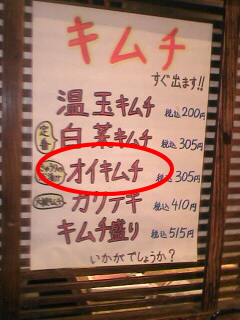 キムチ
すぐ出ます!!
温玉キムチ 税込200円
定番 白菜キムチ 税込305円
オイキムチ 税込305円
大根キムチ カクテキ 税込410円
キムチ盛り 税込515円
いかがでしょうか？